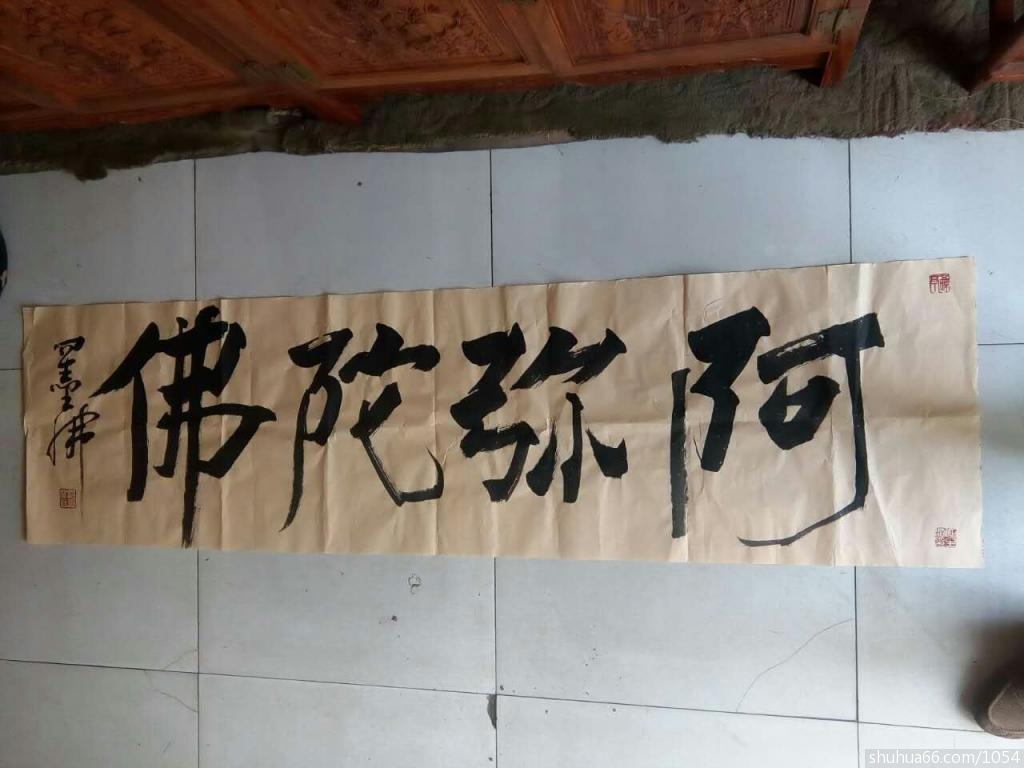 阿弥陀佛
墨佛
shuhua66.com/1054